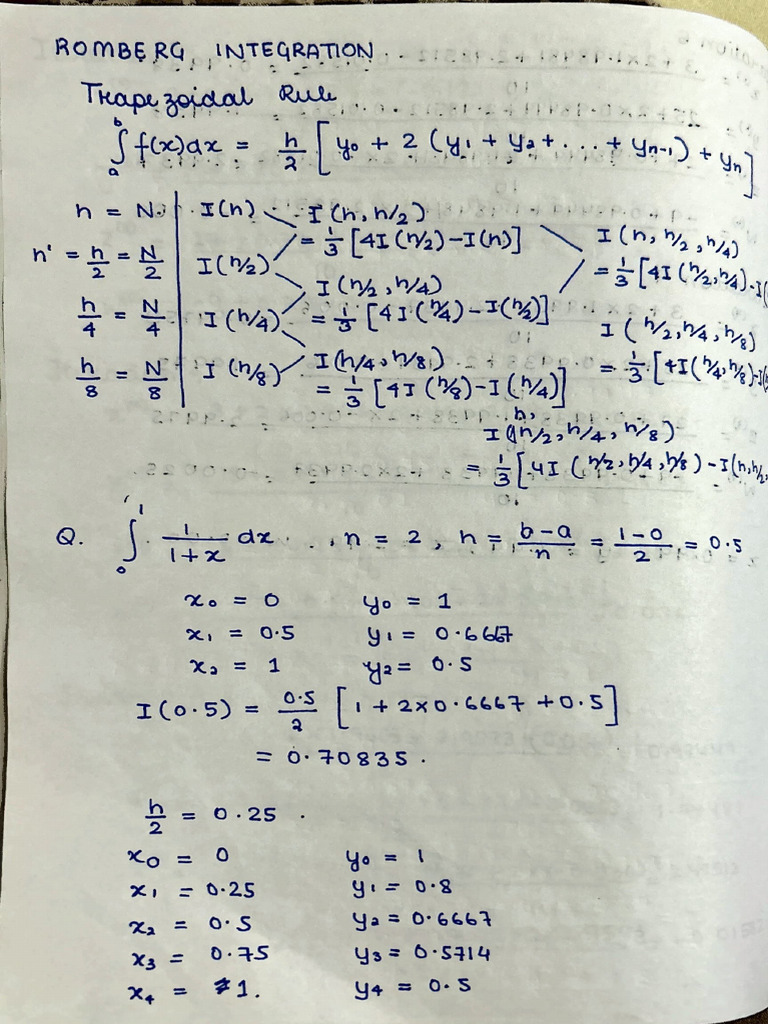 ROMBERG INTEGRATION
Trapezoidal Rule
∫ₐᵇ f(x)dx = h/2 [y₀ + 2(y₁ + y₂ + ... + yₙ₋₁) + yₙ]
h = N I(h) I(h, h/2)
= 1/3 [4I(h/2) - I(h)] I(h, h/2, h/4)
h' = h/2 = N/2 I(h/2) = 1/3 [4I(h/2, h/4) - I(
I(h/2, h/4)
h/4 = N/4 I(h/4) = 1/3 [4I(h/4) - I(h/2)] I(h/2, h/4, h/8)
h/8 = N/8 I(h/8) I(h/4, h/8) = 1/3 [4I(h/4, h/8) - I(
= 1/3 [4I(h/8) - I(h/4)]
I(h, h/2, h/4, h/8)
= 1/3 [4I(h/2, h/4, h/8) - I(h, h/2,
Q. ∫₀¹ 1/(1+x) dx , n = 2, h = (b-a)/n = (1-0)/2 = 0.5
x₀ = 0 y₀ = 1
x₁ = 0.5 y₁ = 0.6667
x₂ = 1 y₂ = 0.5
I(0.5) = 0.5/2 [1 + 2×0.6667 + 0.5]
= 0.70835.
h/2 = 0.25.
x₀ = 0 y₀ = 1
x₁ = 0.25 y₁ = 0.8
x₂ = 0.5 y₂ = 0.6667
x₃ = 0.75 y₃ = 0.5714
x₄ = 1. y₄ = 0.5